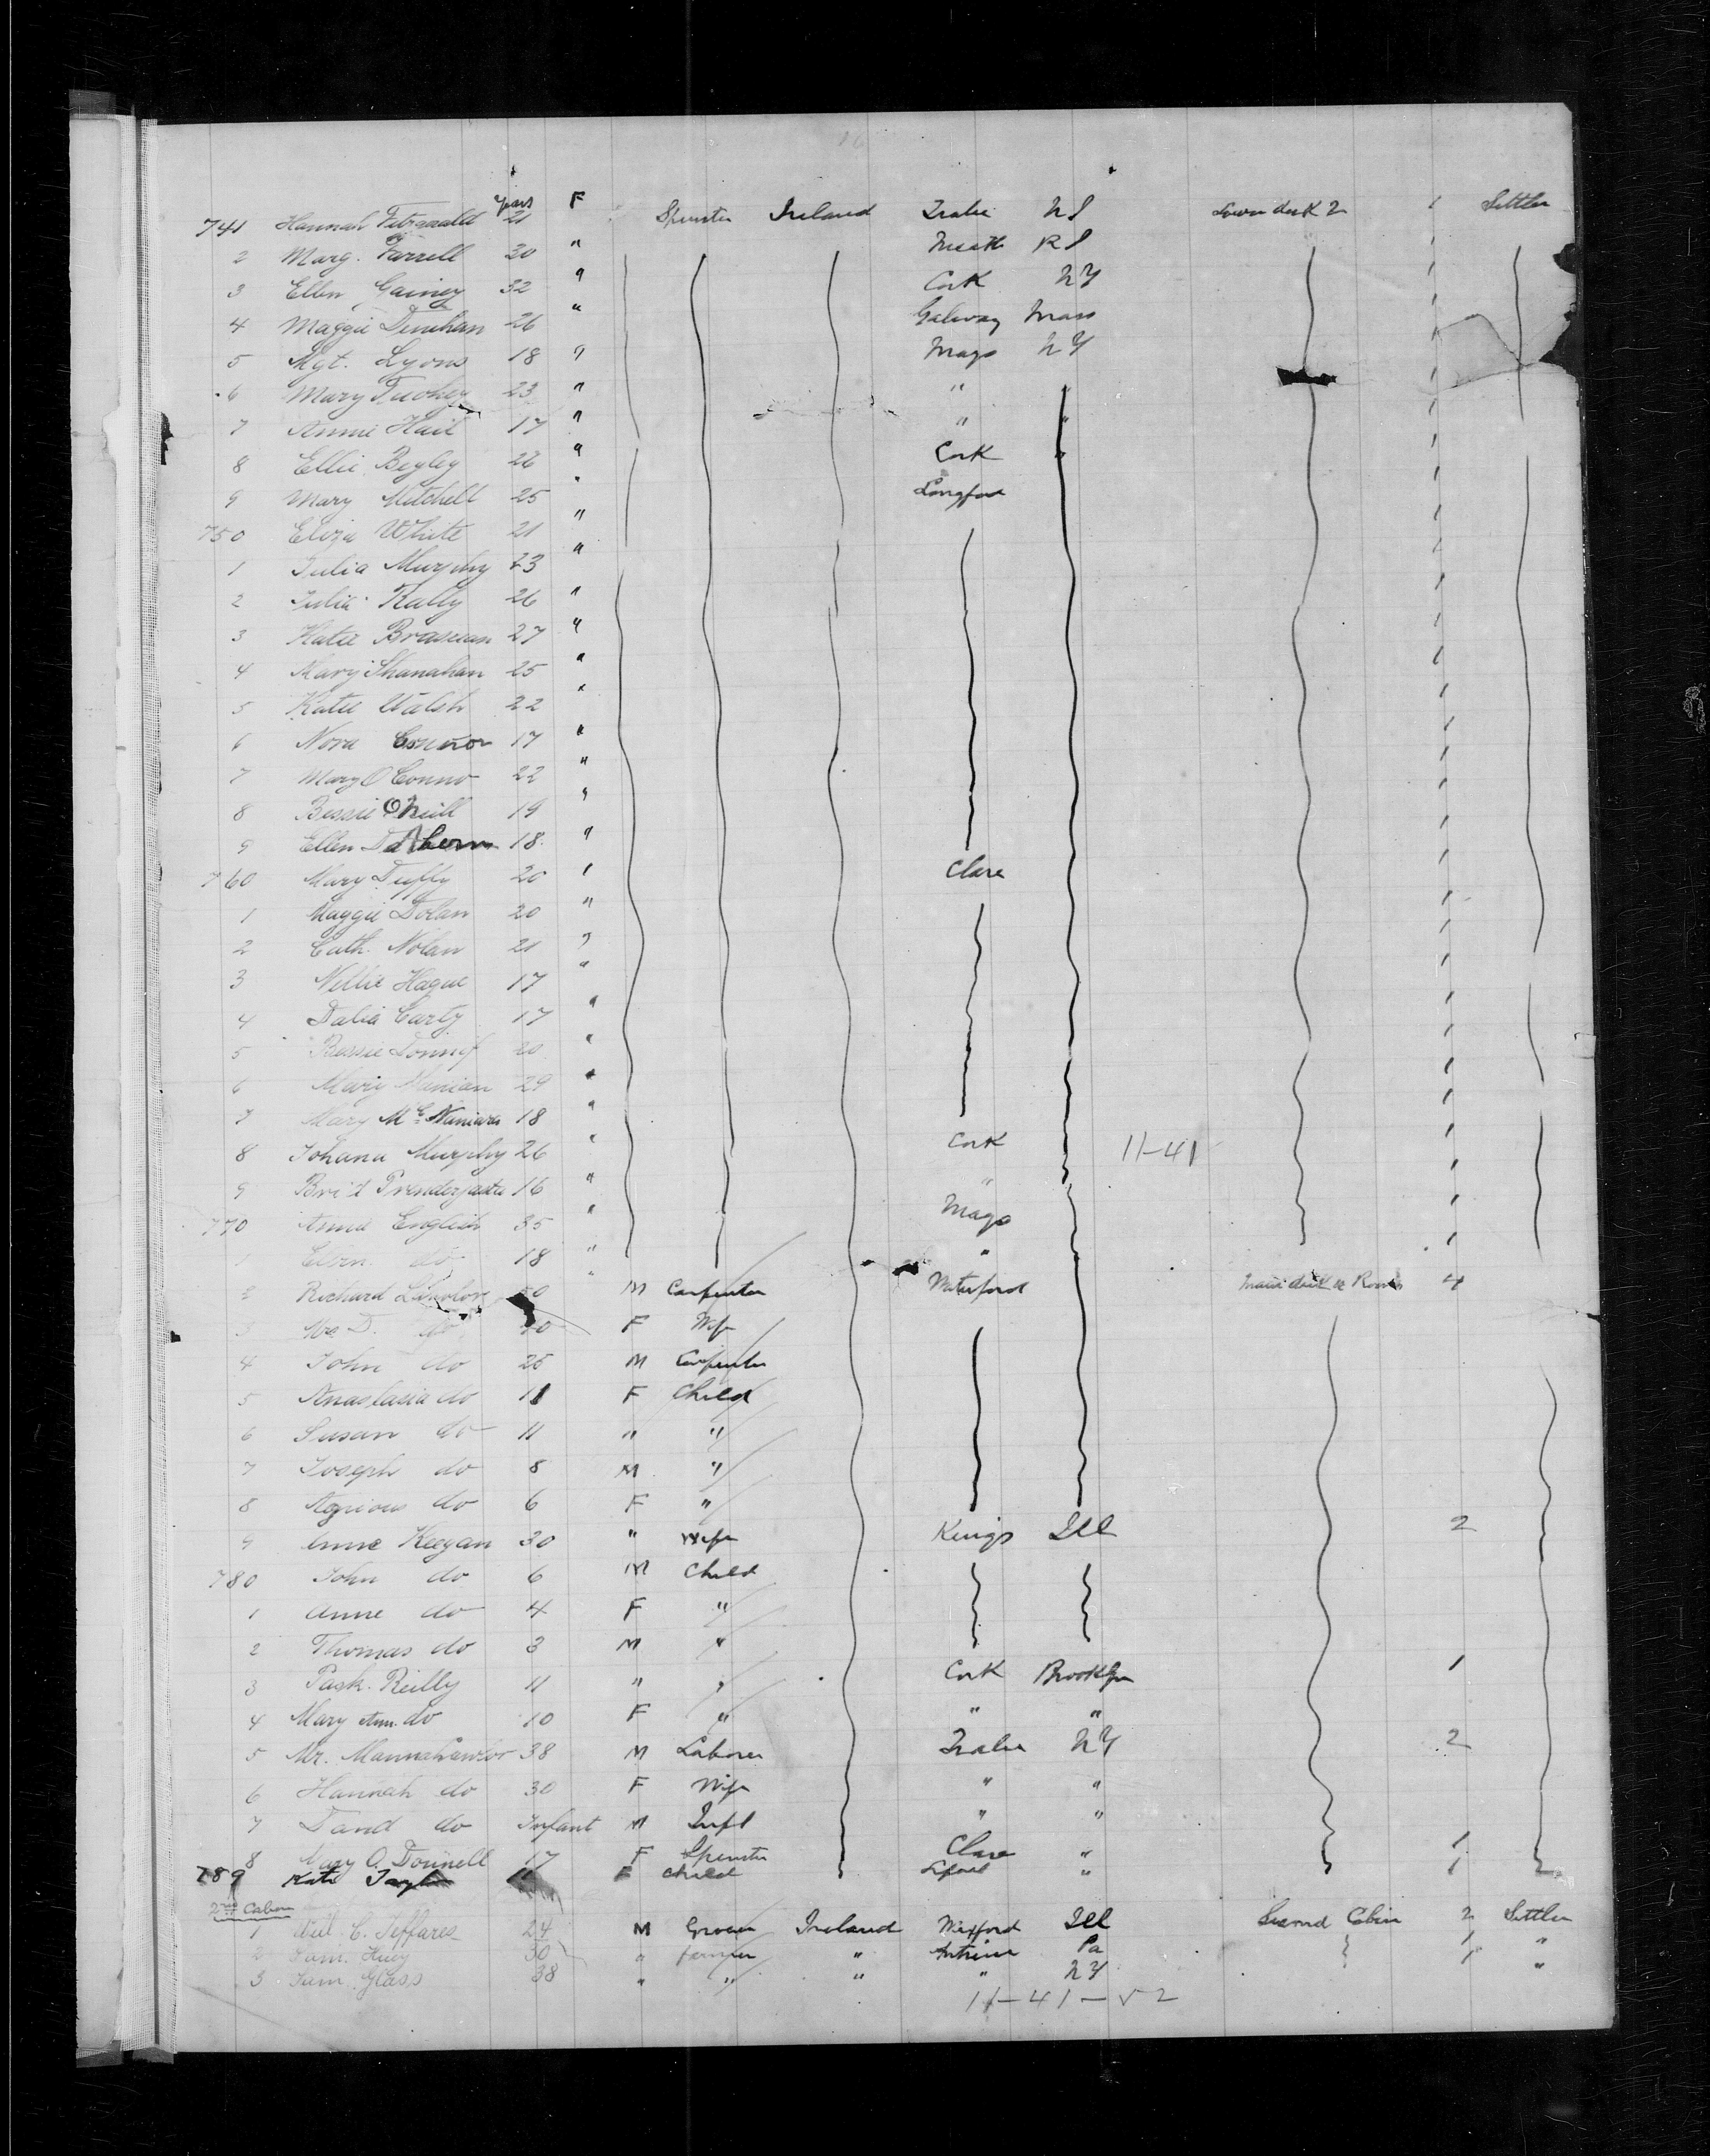 16
741 Hannah Fitzgerald Years 21 F Spinster Ireland Tralee N J Lower deck 2 1 Settler
2 Marg. Farrell 20 " Meath R I 1
3 Ellen Gainey 32 " Cork N Y 1
4 Maggie Denihan 26 " Galway Mass 1
5 Mgt. Lyons 18 " Mayo N Y 1
6 Mary Tuohey 23 " " 1
7 Annie Hail 17 " " " 1
8 Ellie Begley 26 " Cork " 1
9 Mary Mitchell 25 " Longford 1
750 Eliza White 21 " 1
1 Julia Murphy 23 " 1
2 Julia Kally 26 " 1
3 Katie Brasnan 27 " 1
4 Mary Shanahan 25 " 1
5 Katie Walsh 22 " 1
6 Nora Connor 17 " 1
7 Mary O Connor 22 " 1
8 Bessie O Neill 19 " 1
9 Ellen 18 " 1
760 Mary Duffy 20 " Clare 1
1 Maggie Dolan 20 " 1
2 Cath. Nolan 21 " 1
3 Nellie Hague 17 " 1
4 Dalia Carty 17 " 1
5 Bessie 20 " 1
6 Mary 29 " 1
7 Mary Mc 18 " 1
8 Johana Murphy 26 " Cork 11-41 1
9 Bri'd 16 " " 1
770 Anna English 35 " Mayo 1
1 do 18 " " 1
2 Richard M Carpenter Waterford Main deck Rooms 4
3 do 40 F Wife
4 John do 25 M Carpenter
5 Anastasia do 11 F Child
6 Susan do 11 " "
7 Joseph do 8 M "
8 do 6 F "
9 Anne Keegan 30 " Wife Kings Ill 2
780 John do 6 M Child
1 Anne do 4 F "
2 Thomas do 3 M "
3 Reilly 11 " " Cork Brooklyn 1
4 Mary Ann. do 10 F " " "
5 Mr. 38 M Laborer Tralee N Y 2
6 Hannah do 30 F Wife " "
7 David do Infant M Inft " "
8 Mary O. Donnell 17 F Spinster Clare " 1
789 Kate 11 F Child " 1
2nd Cabin
1 C. Jeffares 24 M Grocer Ireland Wexford Ill Second Cabin 2 Settler
2 Sam. Huey 30 " farmer " Antrim Pa 1 "
3 Sam. Glass 38 " " " " N Y 1 "
11-41-52